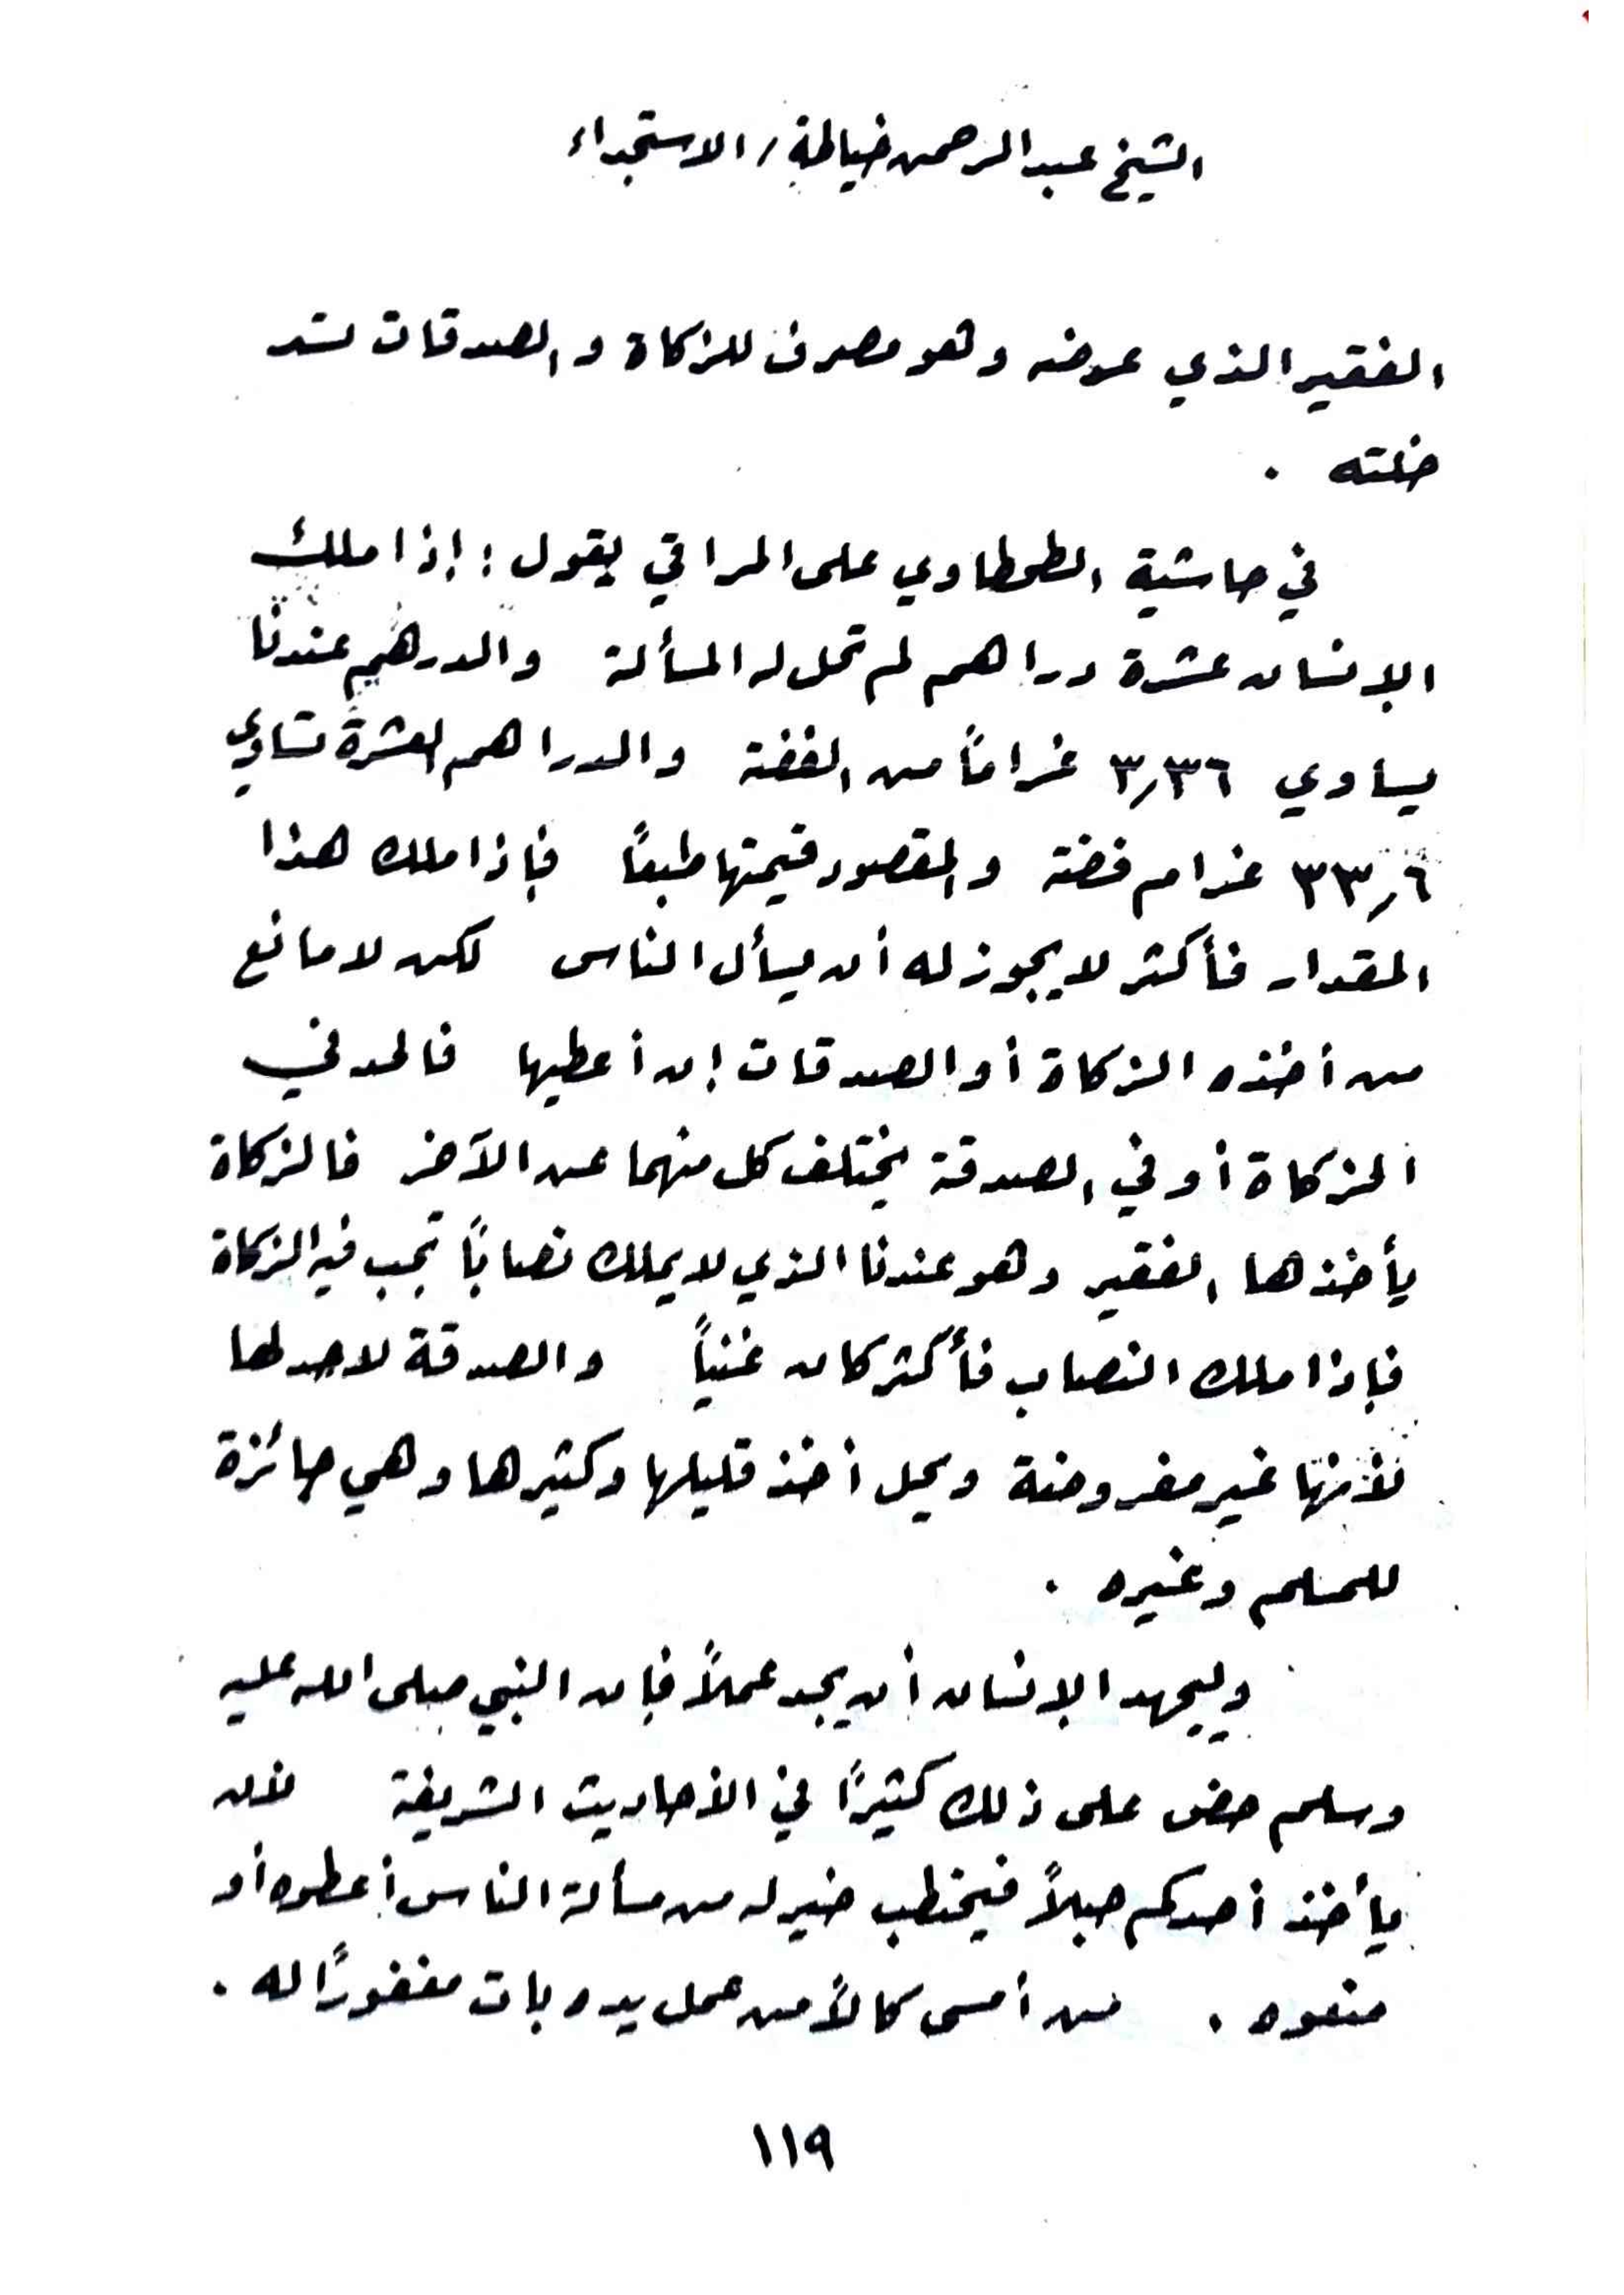 الشيخ عبد الرحمن خياطة / الاستجداء
الفقير الذي عرضه وهو مصرف للزكاة و الصدقات لسد
خلته .
في حاشية الطحطاوي على المراقي يقول : إذا ملك
الإنسان عشرة دراهم لم تحل له المسألة والدرهم عندنا
يساوي ٣,٣٦ غراماً من الفضة والدراهم العشرة تساوي
٣٣,٦ غرام فضة والمقصود قيمتها طبعاً فإذا ملك هذا
المقدار فأكثر لا يجوز له أن يسأل الناس لكن لا مانع
من أخذه الزكاة أو الصدقات إن أعطيها فالحد في
الزكاة أو في الصدقة يختلف كل منهما عن الآخر فالزكاة
يأخذها الفقير وهو عندنا الذي لا يملك نصاباً تجب فيه الزكاة
فإذا ملك النصاب فأكثر كان غنياً والصدقة لا حد لها
لأنها غير مفروضة ويحل أخذ قليلها وكثيرها وهي جائزة
للمسلم وغيره .
وليجهد الإنسان أن يجد عملاً فإن النبي صلى الله عليه
وسلم حض على ذلك كثيراً في الأحاديث الشريفة لأن
يأخذ أحدكم حبلاً فيحتطب خير له من مسألة الناس أعطوه أو
منعوه . من أمسى كالاً من عمل يده بات مغفوراً له .
١١٩